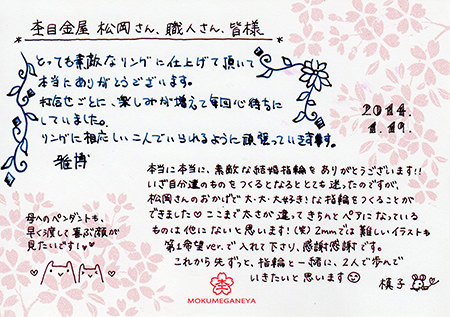 杢目金屋 松岡さん、職人さん、皆様
とっても素敵なリングに仕上げて頂いて
本当にありがとうございます。
打合せごとに、楽しみが増えて毎回心待ちに
していました。
リングに相応しい二人でいられるように頑張っていきます。
雅博
2014.
1.19.
本当に本当に、素敵な結婚指輪をありがとうございます!!
いざ自分達のものをつくるとなるととても迷ったのですが、
松岡さんのおかげで大・大・大好き!な指輪をつくることが
できました♡ここまで太さが違ってきちんとペアになっている
ものは他にないと思います!(笑)2mmでは難しいイラストも
第1希望ver.で入れて下さり、感謝感謝です。
これから先ずっと、指輪と一緒に、2人で歩んで
いきたいと思います
槙子
母へのペンダントも、
早く渡して喜ぶ顔が
見たいです!♥
杢
MOKUMEGANEYA